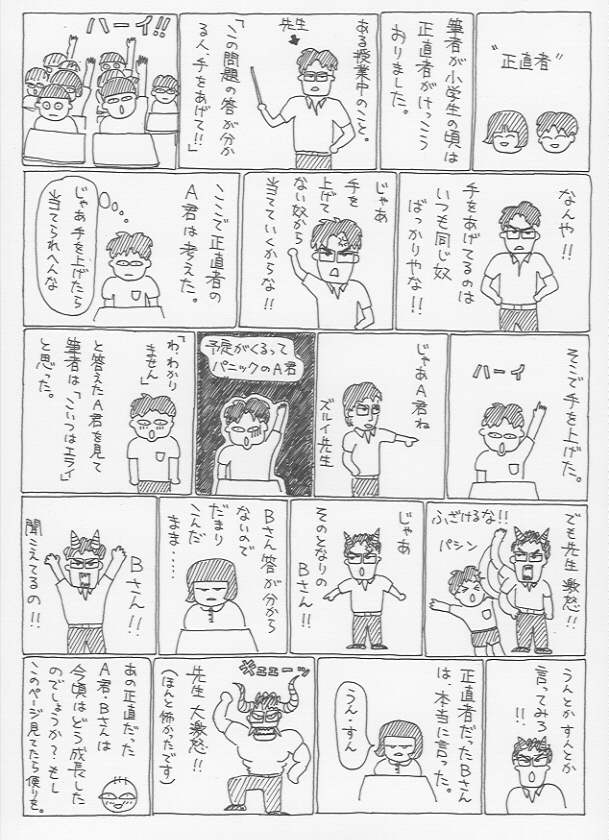 “正直者”
筆者が小学生の頃は
正直者がけっこう
おりました。
ある授業中のこと。
先生
「この問題の答が分か
る人、手をあげて!!」
ハーイ!!
なんや!!
手をあげてるのは
いつも同じ奴
ばっかりやな!!
じゃあ
手を
上げて
ない奴から
当てていくからな!!
ここで正直者の
A君は考えた。
じゃあ手を上げたら
当てられへんな
そこで手を上げた。
ハーイ
じゃあA君ね
ズルイ先生
予定がくるって
パニックのA君
「わ、わかり
ません」
と答えたA君を見て
筆者は「こいつはエライ」
と思った。
でも先生激怒!!
ふざけるな!!
パシン
じゃあ
そのとなりの
Bさん!!
Bさん答が分から
ないので
だまり
こんだ
まま....
Bさん!!
聞こえてるの!!
うんとかすんとか
言ってみろ
!!
正直者だったBさん
は、本当に言った。
うん・すん
先生大激怒!!
(ほんと怖かったです)
あの正直だった
A君・Bさんは
今頃はどう成長した
のでしょうか?もし
このページ見てたら便りを。